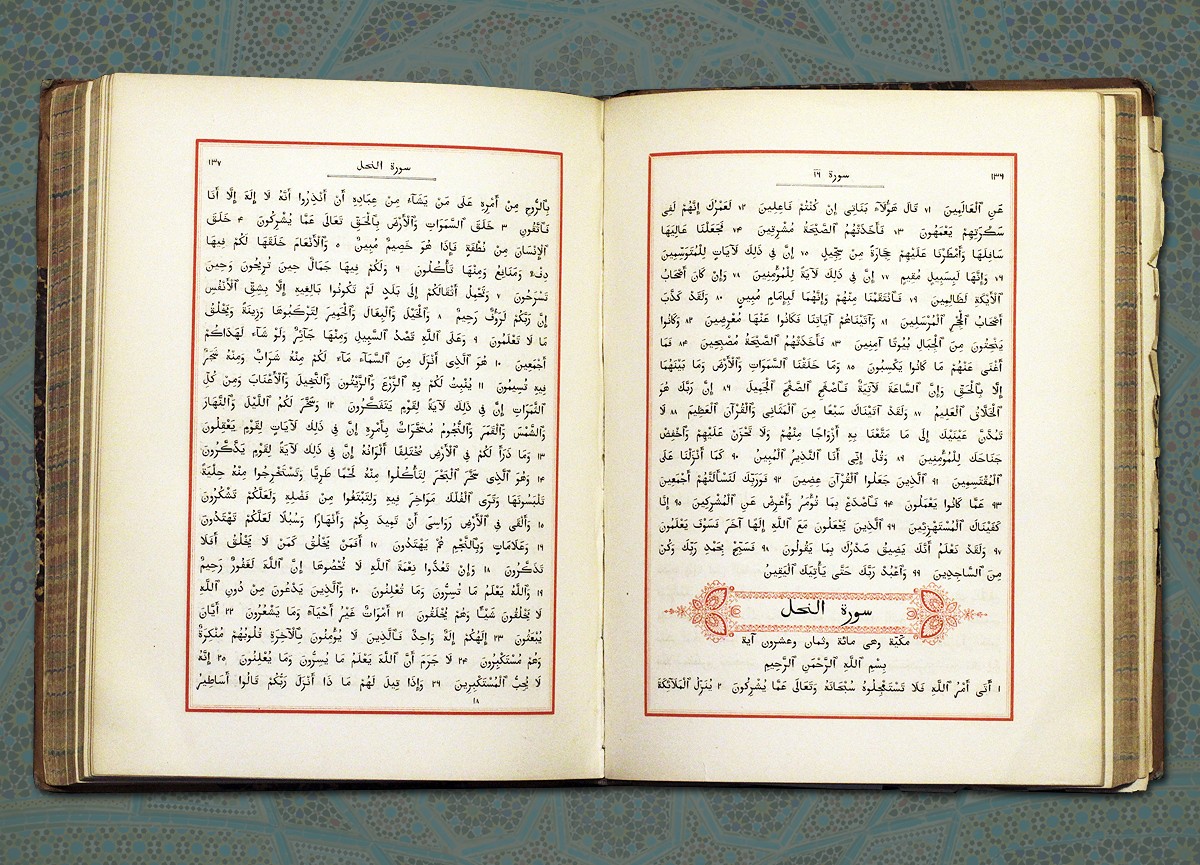 ١٣٦
سورة ١٦
عَنِ ٱلْعَالَمِينَ ٧١ قَالَ هَؤُلَآءِ بَنَاتِى إِنْ كُنْتُمْ فَاعِلِينَ ٧٢ لَعَمْرُكَ إِنَّهُمْ لَفِى
سَكْرَتِهِمْ يَعْمَهُونَ ٧٣ فَأَخَذَتْهُمُ ٱلصَّيْحَةُ مُشْرِقِينَ ٧٤ فَجَعَلْنَا عَالِيَهَا
سَافِلَهَا وَأَمْطَرْنَا عَلَيْهِمْ حِجَارَةً مِنْ سِجِّيلٍ ٧٥ إِنَّ فِى ذَلِكَ لَآيَاتٍ لِلْمُتَوَسِّمِينَ
٧٦ وَإِنَّهَا لَبِسَبِيلٍ مُقِيمٍ ٧٧ إِنَّ فِى ذَلِكَ لَآيَةً لِلْمُؤْمِنِينَ ٧٨ وَإِنْ كَانَ أَصْحَابُ
ٱلْأَيْكَةِ لَظَالِمِينَ ٧٩ فَٱنْتَقَمْنَا مِنْهُمْ وَإِنَّهُمَا لَبِإِمَامٍ مُبِينٍ ٨٠ وَلَقَدْ كَذَّبَ
أَصْحَابُ ٱلْحِجْرِ ٱلْمُرْسَلِينَ ٨١ وَآتَيْنَاهُمْ آيَاتِنَا فَكَانُوا عَنْهَا مُعْرِضِينَ ٨٢ وَكَانُوا
يَنْحِتُونَ مِنَ ٱلْجِبَالِ بُيُوتًا آمِنِينَ ٨٣ فَأَخَذَتْهُمُ ٱلصَّيْحَةُ مُصْبِحِينَ ٨٤ فَمَا
أَغْنَى عَنْهُمْ مَا كَانُوا يَكْسِبُونَ ٨٥ وَمَا خَلَقْنَا ٱلسَّمَوَاتِ وَٱلْأَرْضَ وَمَا بَيْنَهُمَا
إِلَّا بِٱلْحَقِّ وَإِنَّ ٱلسَّاعَةَ لَآتِيَةٌ فَٱصْفَحِ ٱلصَّفْحَ ٱلْجَمِيلَ ٨٦ إِنَّ رَبَّكَ هُوَ
ٱلْخَلَّاقُ ٱلْعَلِيمُ ٨٧ وَلَقَدْ آتَيْنَاكَ سَبْعًا مِنَ ٱلْمَثَانِى وَٱلْقُرْآنَ ٱلْعَظِيمَ ٨٨ لَا
تَمُدَّنَّ عَيْنَيْكَ إِلَى مَا مَتَّعْنَا بِهِ أَزْوَاجًا مِنْهُمْ وَلَا تَحْزَنْ عَلَيْهِمْ وَٱخْفِضْ
جَنَاحَكَ لِلْمُؤْمِنِينَ ٨٩ وَقُلْ إِنِّى أَنَا ٱلنَّذِيرُ ٱلْمُبِينُ ٩٠ كَمَا أَنْزَلْنَا عَلَى
ٱلْمُقْتَسِمِينَ ٩١ ٱلَّذِينَ جَعَلُوا ٱلْقُرْآنَ عِضِينَ ٩٢ فَوَرَبِّكَ لَنَسْأَلَنَّهُمْ أَجْمَعِينَ
٩٣ عَمَّا كَانُوا يَعْمَلُونَ ٩٤ فَٱصْدَعْ بِمَا تُؤْمَرُ وَأَعْرِضْ عَنِ ٱلْمُشْرِكِينَ ٩٥ إِنَّا
كَفَيْنَاكَ ٱلْمُسْتَهْزِئِينَ ٩٦ ٱلَّذِينَ يَجْعَلُونَ مَعَ ٱللَّهِ إِلَهًا آخَرَ فَسَوْفَ يَعْلَمُونَ
٩٧ وَلَقَدْ نَعْلَمُ أَنَّكَ يَضِيقُ صَدْرُكَ بِمَا يَقُولُونَ ٩٨ فَسَبِّحْ بِحَمْدِ رَبِّكَ وَكُنْ
مِنَ ٱلسَّاجِدِينَ ٩٩ وَٱعْبُدْ رَبَّكَ حَتَّى يَأْتِيَكَ ٱلْيَقِينُ
سورة النحل
مكّيّة وهى مائة وثمان وعشرون آية
بِسْمِ ٱللَّهِ ٱلرَّحْمَنِ ٱلرَّحِيمِ
١ أَتَى أَمْرُ ٱللَّهِ فَلَا تَسْتَعْجِلُوهُ سُبْحَانَهُ وَتَعَالَى عَمَّا يُشْرِكُونَ ٢ يُنَزِّلُ ٱلْمَلَآئِكَةَ
١٣٧
سورة النحل
بِٱلرُّوحِ مِنْ أَمْرِهِ عَلَى مَنْ يَشَآءُ مِنْ عِبَادِهِ أَنْ أَنْذِرُوا أَنَّهُ لَا إِلَهَ إِلَّا أَنَا
فَٱتَّقُونِ ٣ خَلَقَ ٱلسَّمَوَاتِ وَٱلْأَرْضَ بِٱلْحَقِّ تَعَالَى عَمَّا يُشْرِكُونَ ٤ خَلَقَ
ٱلْإِنْسَانَ مِنْ نُطْفَةٍ فَإِذَا هُوَ خَصِيمٌ مُبِينٌ ٥ وَٱلْأَنْعَامَ خَلَقَهَا لَكُمْ فِيهَا
دِفْءٌ وَمَنَافِعُ وَمِنْهَا تَأْكُلُونَ ٦ وَلَكُمْ فِيهَا جَمَالٌ حِينَ تُرِيحُونَ وَحِينَ
تَسْرَحُونَ ٧ وَتَحْمِلُ أَثْقَالَكُمْ إِلَى بَلَدٍ لَمْ تَكُونُوا بَالِغِيهِ إِلَّا بِشِقِّ ٱلْأَنْفُسِ
إِنَّ رَبَّكُمْ لَرَؤُفٌ رَحِيمٌ ٨ وَٱلْخَيْلَ وَٱلْبِغَالَ وَٱلْحَمِيرَ لِتَرْكَبُوهَا وَزِينَةً وَيَخْلُقُ
مَا لَا تَعْلَمُونَ ٩ وَعَلَى ٱللَّهِ قَصْدُ ٱلسَّبِيلِ وَمِنْهَا جَآئِرٌ وَلَوْ شَآءَ لَهَدَاكُمْ
أَجْمَعِينَ ١٠ هُوَ ٱلَّذِى أَنْزَلَ مِنَ ٱلسَّمَآءِ مَآءً لَكُمْ مِنْهُ شَرَابٌ وَمِنْهُ شَجَرٌ
فِيهِ تُسِيمُونَ ١١ يُنْبِتُ لَكُمْ بِهِ ٱلزَّرْعَ وَٱلزَّيْتُونَ وَٱلنَّخِيلَ وَٱلْأَعْنَابَ وَمِنْ كُلِّ
ٱلثَّمَرَاتِ إِنَّ فِى ذَلِكَ لَآيَةً لِقَوْمٍ يَتَفَكَّرُونَ ١٢ وَسَخَّرَ لَكُمُ ٱللَّيْلَ وَٱلنَّهَارَ
وَٱلشَّمْسَ وَٱلْقَمَرَ وَٱلنُّجُومُ مُسَخَّرَاتٌ بِأَمْرِهِ إِنَّ فِى ذَلِكَ لَآيَاتٍ لِقَوْمٍ يَعْقِلُونَ
١٣ وَمَا ذَرَأَ لَكُمْ فِى ٱلْأَرْضِ مُخْتَلِفًا أَلْوَانُهُ إِنَّ فِى ذَلِكَ لَآيَةً لِقَوْمٍ يَذَّكَّرُونَ
١٤ وَهُوَ ٱلَّذِى سَخَّرَ ٱلْبَحْرَ لِتَأْكُلُوا مِنْهُ لَحْمًا طَرِيًّا وَتَسْتَخْرِجُوا مِنْهُ حِلْيَةً
تَلْبَسُونَهَا وَتَرَى ٱلْفُلْكَ مَوَاخِرَ فِيهِ وَلِتَبْتَغُوا مِنْ فَضْلِهِ وَلَعَلَّكُمْ تَشْكُرُونَ
١٥ وَأَلْقَى فِى ٱلْأَرْضِ رَوَاسِىَ أَنْ تَمِيدَ بِكُمْ وَأَنْهَارًا وَسُبُلًا لَعَلَّكُمْ تَهْتَدُونَ
١٦ وَعَلَامَاتٍ وَبِٱلنَّجْمِ هُمْ يَهْتَدُونَ ١٧ أَفَمَنْ يَخْلُقُ كَمَنْ لَا يَخْلُقُ أَفَلَا
تَذَكَّرُونَ ١٨ وَإِنْ تَعُدُّوا نِعْمَةَ ٱللَّهِ لَا تُحْصُوهَا إِنَّ ٱللَّهَ لَغَفُورٌ رَحِيمٌ
١٩ وَٱللَّهُ يَعْلَمُ مَا تُسِرُّونَ وَمَا تُعْلِنُونَ ٢٠ وَٱلَّذِينَ يَدْعُونَ مِنْ دُونِ ٱللَّهِ
لَا يَخْلُقُونَ شَيْئًا وَهُمْ يُخْلَقُونَ ٢١ أَمْوَاتٌ غَيْرُ أَحْيَآءٍ وَمَا يَشْعُرُونَ ٢٢ أَيَّانَ
يُبْعَثُونَ ٢٣ إِلَهُكُمْ إِلَهٌ وَاحِدٌ فَٱلَّذِينَ لَا يُؤْمِنُونَ بِٱلْآخِرَةِ قُلُوبُهُمْ مُنْكِرَةٌ
وَهُمْ مُسْتَكْبِرُونَ ٢٤ لَا جَرَمَ أَنَّ ٱللَّهَ يَعْلَمُ مَا يُسِرُّونَ وَمَا يُعْلِنُونَ ٢٥ إِنَّهُ
لَا يُحِبُّ ٱلْمُسْتَكْبِرِينَ ٢٦ وَإِذَا قِيلَ لَهُمْ مَا ذَا أَنْزَلَ رَبُّكُمْ قَالُوا أَسَاطِيرُ
١٨